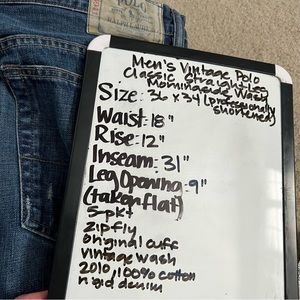 POLO
RALPH LAUREN
Men's Vintage Polo
Classic Straight Leg
Morningside Wash
Size: 36 x 34 (professionally
shortened)
Waist: 18"
Rise: 12"
Inseam: 31"
Leg Opening: 9"
(taken flat)
5 pkt
zip fly
original cuff
vintage wash
2010, 100% cotton
rigid denim